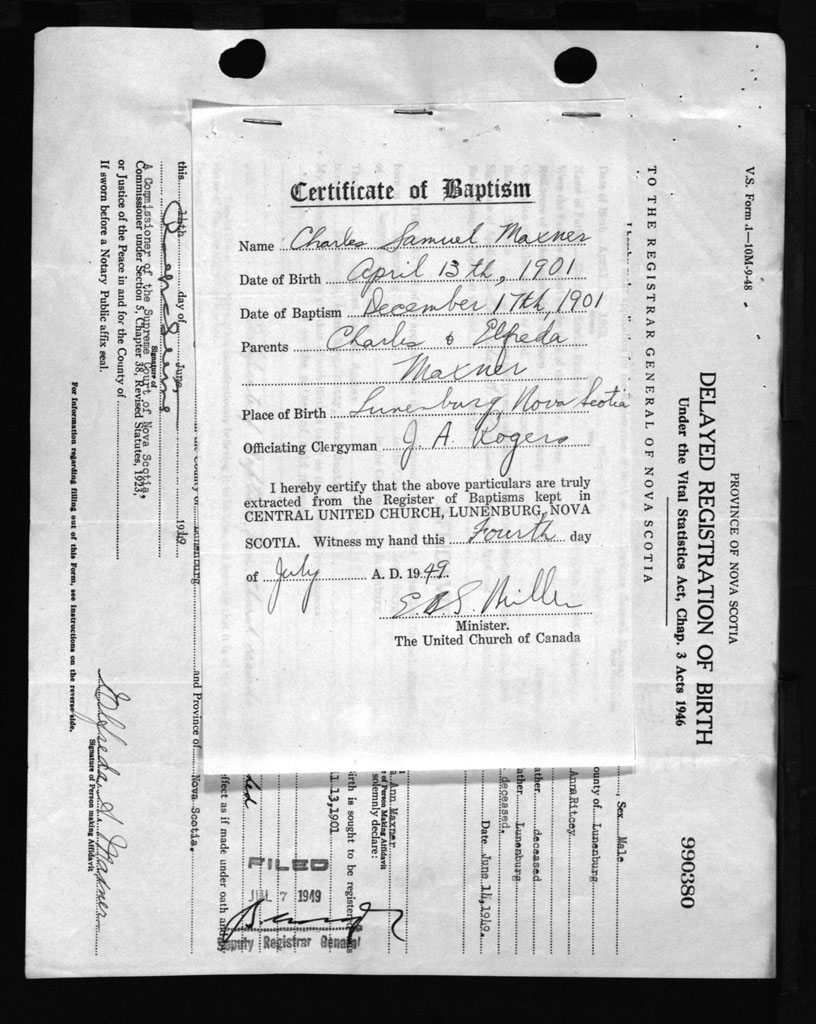 Certificate of Baptism
Name Charles Samuel Maxner
Date of Birth April 13th, 1901
Date of Baptism December 17th, 1901
Parents Charles & Elfreda
Maxner
Place of Birth Lunenburg, Nova Scotia
Officiating Clergyman J. A. Rogers
I hereby certify that the above particulars are truly
extracted from the Register of Baptisms kept in
CENTRAL UNITED CHURCH, LUNENBURG, NOVA
SCOTIA. Witness my hand this Fourth day
of July A. D. 1949.
Miller
Minister.
The United Church of Canada
V.S. Form J—10M-9-48
PROVINCE OF NOVA SCOTIA
DELAYED REGISTRATION OF BIRTH
Under the Vital Statistics Act, Chap. 3 Acts 1946
990380
TO THE REGISTRAR GENERAL OF NOVA SCOTIA
, Sex Male
ounty of Lunenburg
Ann Ritcey
ather deceased
ather Lunenburg
deceased.
Date June 14, 1949.
a Ann Maxner
of Person Making Affidavit
solemnly declare:
irth is sought to be register as
13, 1901
effect as if made under oath and
FILED
JUL 7 1949
Deputy Registrar General
the County of Lunenburg and Province of Nova Scotia.
this 14th day of June, 1949
Signature of
A Commissioner of the Supreme Court of Nova Scotia,
Commissioner under Section 5, Chapter 38, Revised Statutes, 1923,
or Justice of the Peace in and for the County of
If sworn before a Notary Public affix seal.
Elfreda A Maxner
Signature of Person making Affidavit
For information regarding filling out of this Form, see instructions on the reverse side.